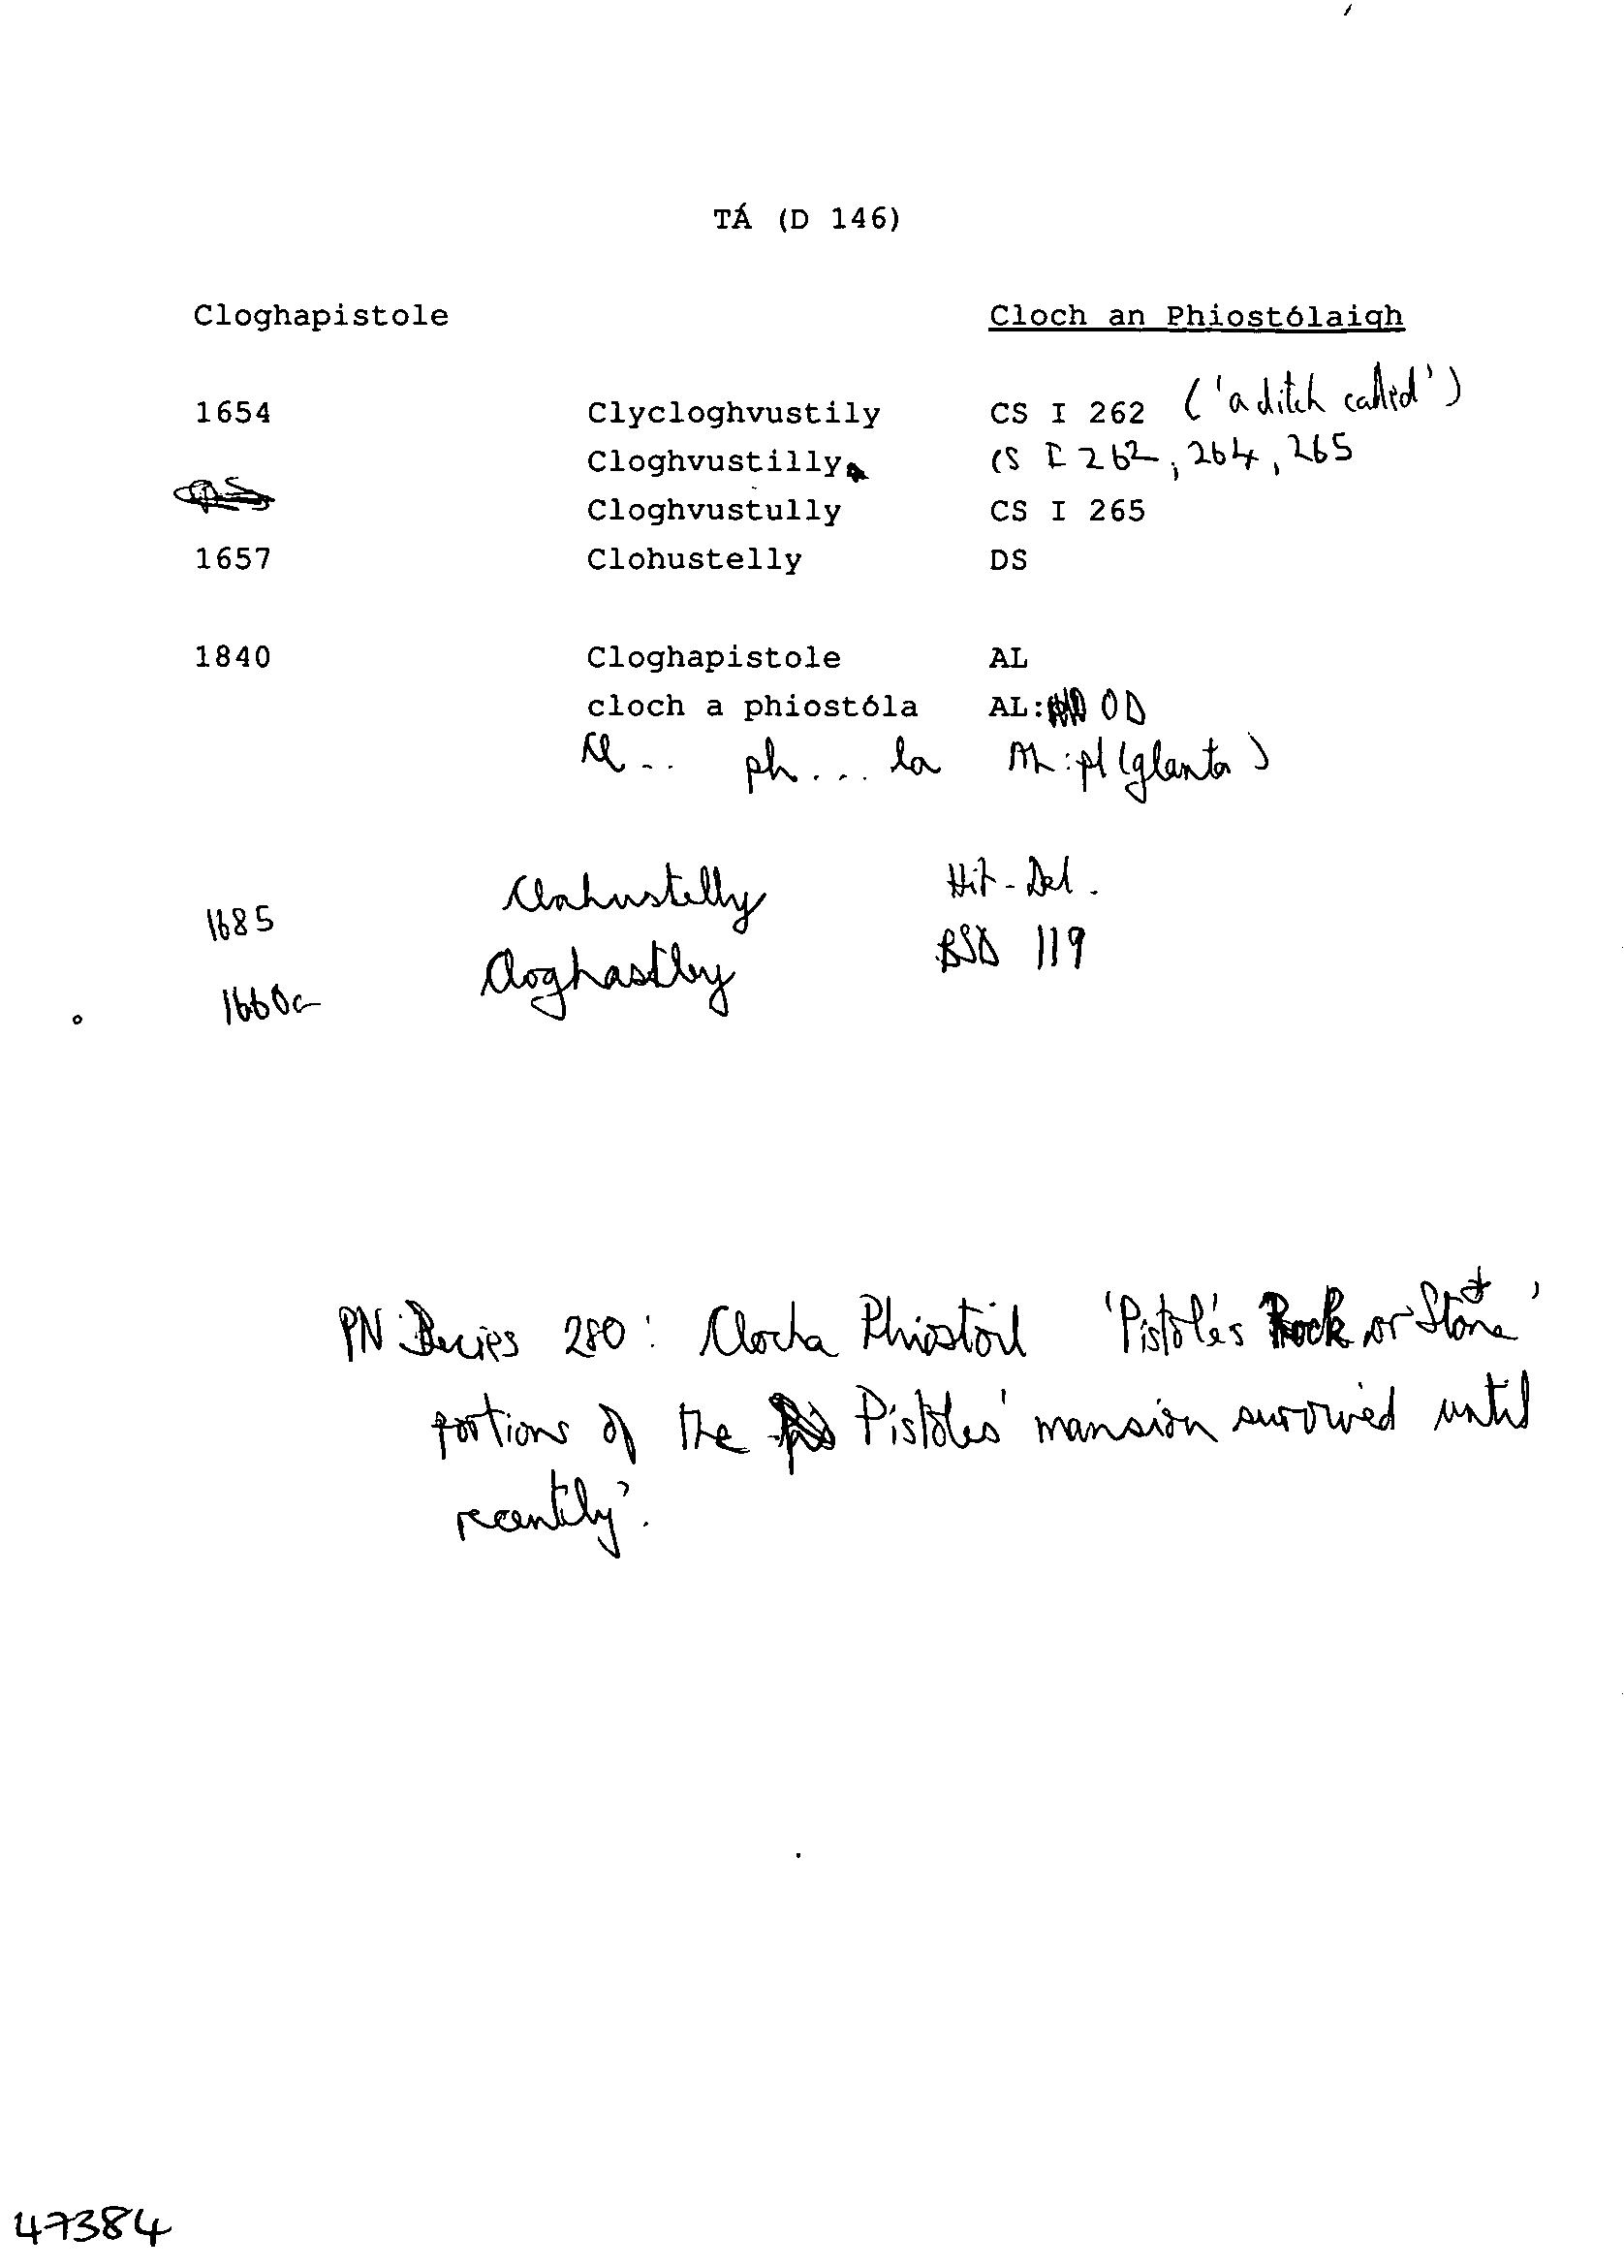 TÁ (D 146)
Cloghapistole Cloch an Phiostólaigh
1654 Clycloghvustily CS I 262 ('a ditch called')
Cloghvustilly CS I 262, 264, 265
Cloghvustully CS I 265
1657 Clohustelly DS
1840 Cloghapistole AL
cloch a phiostóla AL: OD
Cl... ph... la AL:pl (glanta)
1685 Clohustelly Hib. Del.
1660c Cloghastley BSD 119
PN Decies 280: Clocha Phiostóil 'Pistole's Rock or Stone'
portions of the Pistoles' mansion survived until
recently'.
47384